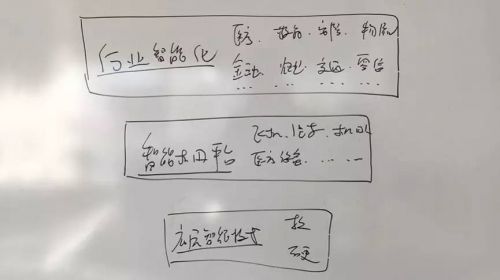 行业智能化
医疗. 教育. 安防. 物流
金融. 农业. 交通. 零售
... ... ... ...
智能应用平台
飞机. 汽车. 机器人
医疗设备. ... ...
底层智能技术
软
硬